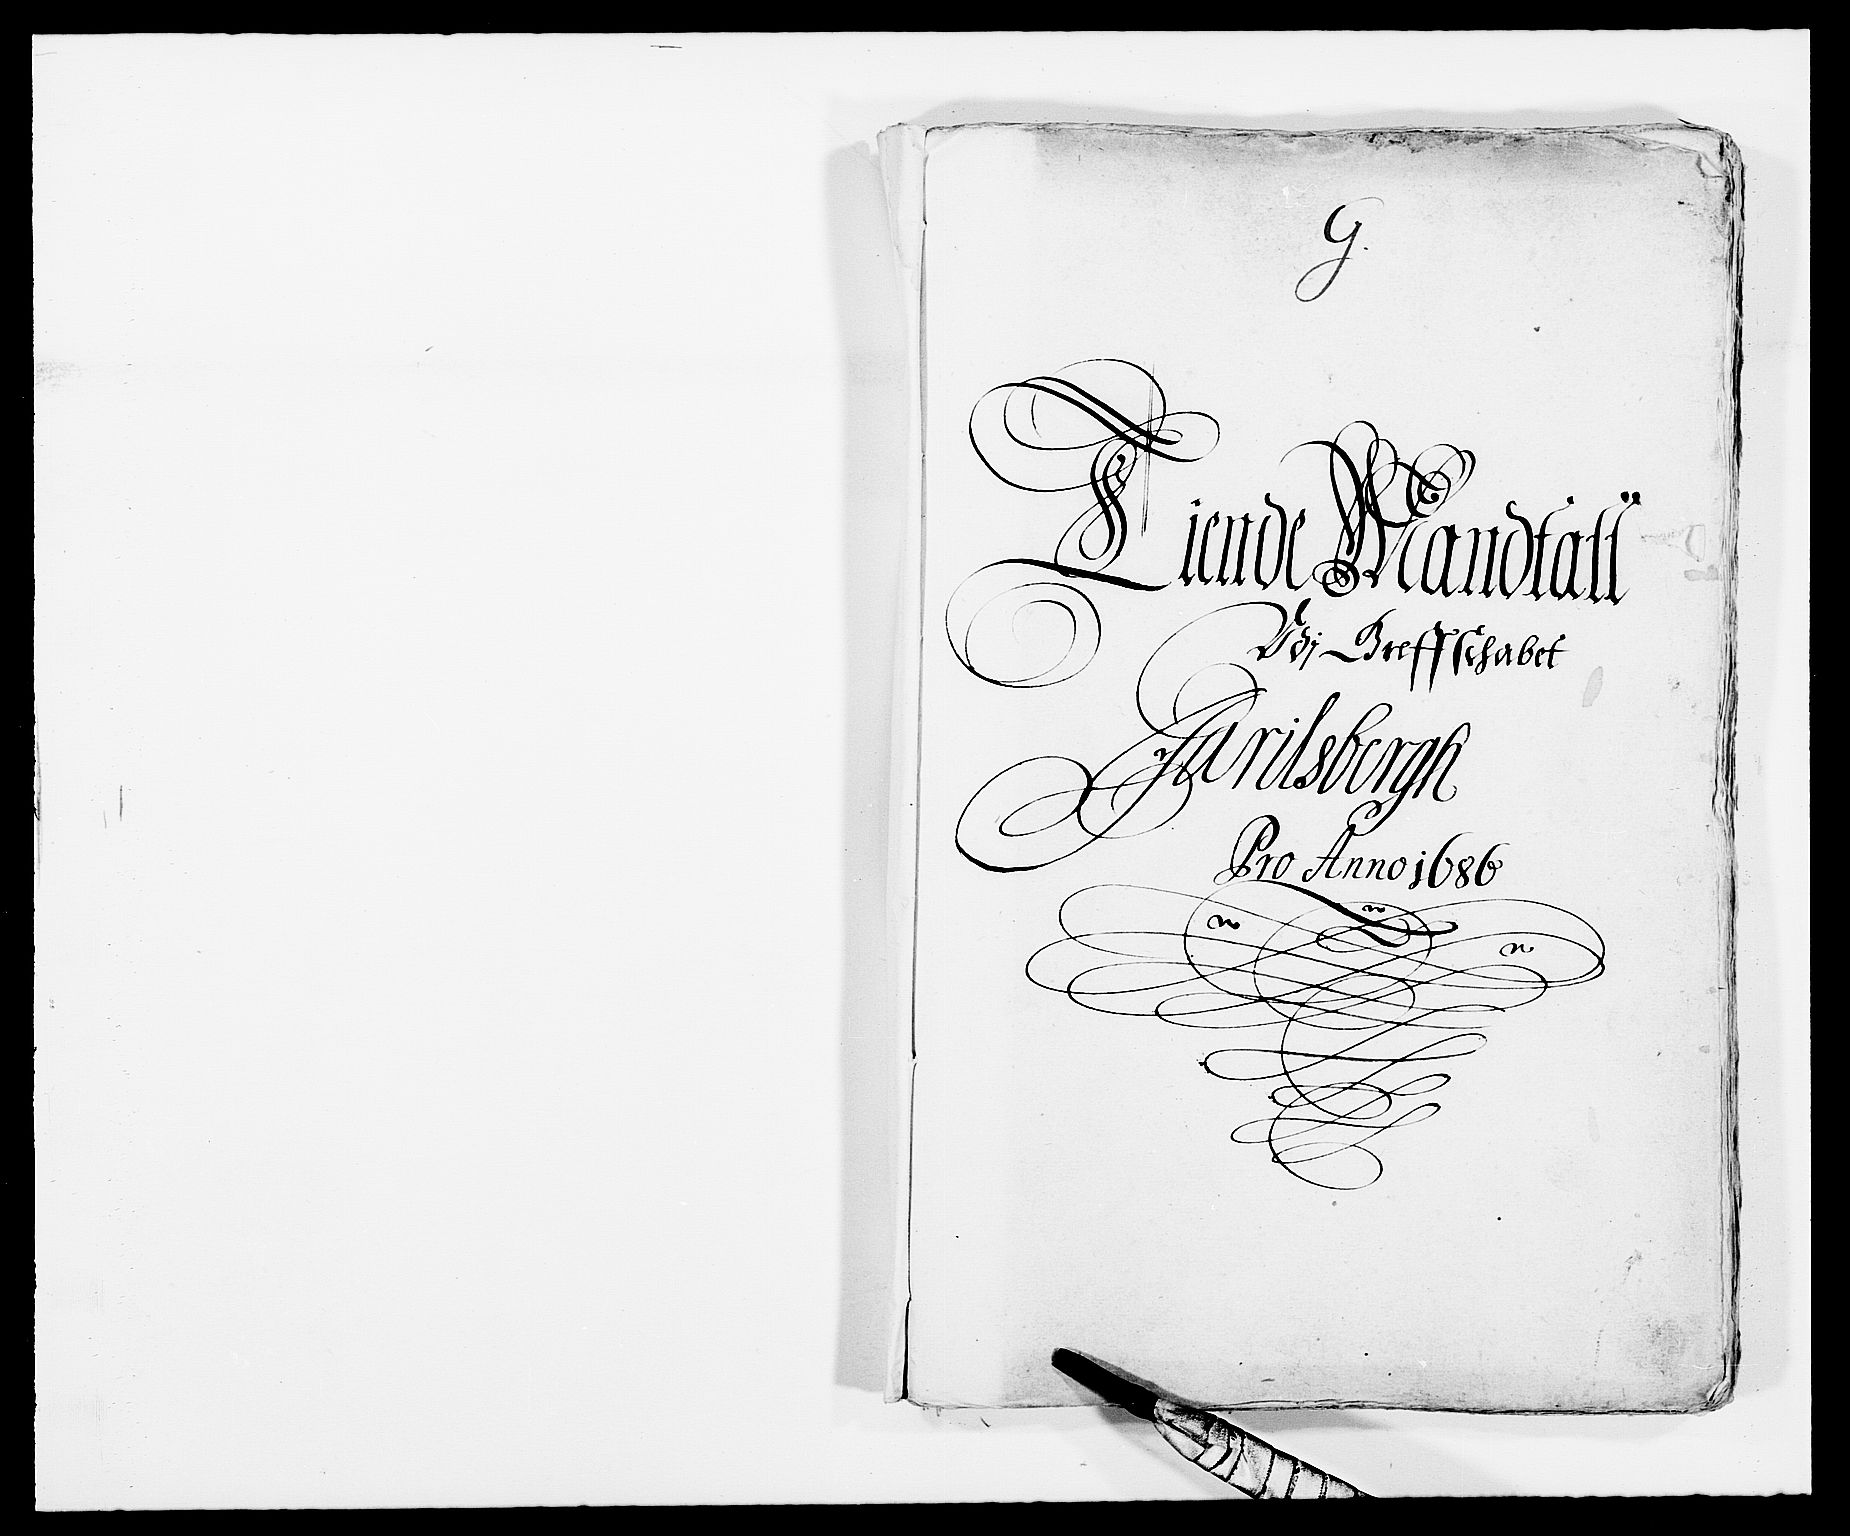 G.
Tiende Mandtall
Udj Greffschabet
Jarilsbergh
Pro Anno 1686